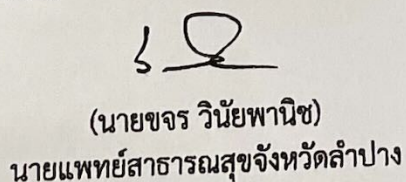 (นายขจร วินัยพานิช)
นายแพทย์สาธารณสุขจังหวัดลำปาง